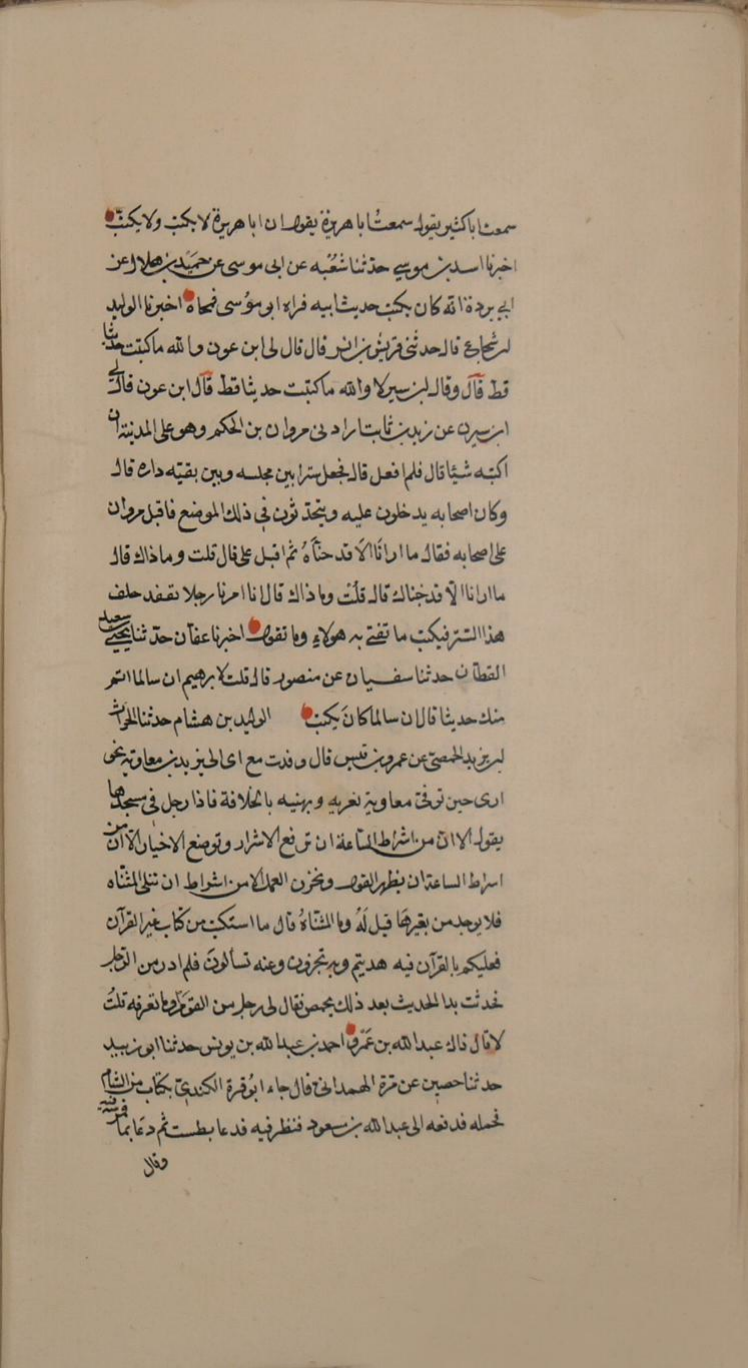 سمعت ابا كثير يقول سمعت ابا هريرة يقول ان ابا هريرة لا يكتب ولا يكتب
اخبرنا اسد بن موسى حدثنا شعبه عن ابى موسى عن حميد بن هلال عن
ابي بردة انه كان يكتب حديث ابيه فراه ابو موسى فمحاه اخبرنا الوليد
بن شجاع قال حدثنى قريش بن انس قال قال لى ابن عون والله ما كتبت حديثا
قط قال وقال ابن سيرين لا والله ما كتبت حديثا قط قال ابن عون قال لي
ابن سيرين عن زيد بن ثابت ارادنى مروان بن الحكم وهو على المدينة ان
اكتبه شيئا قال فلم افعل قال فجعل سترا بين مجلسه وبين بقيته داره قال
وكان اصحابه يدخلون عليه ويتحدثون في ذلك الموضع فاقبل مروان
على اصحابه فقال ما ارانا الا قد خناه ثم اقبل على قال قلت وما ذاك قال
ما ارانا الا قد خناك قال قلت وما ذاك قال انا امرنا رجلا يقعد خلف
هذا الستر فيكتب ما تفتي به هولاء وما تقول اخبرنا عفان حدثنا يحيى بن سعيد
القطان حدثنا سفيان عن منصور قال قلت لابرهيم ان سالما اتم
منك حديثا قال ان سالما كان يكتب الوليد بن هشام حدثنا الحارث
بن يزيد الحمصي عن عمرو بن قيس قال وفدت مع ابى الى يزيد بن معاوية بحو
ارى حين توفى معاوية نعزيه ونهنيه بالخلافة فاذا رجل في مسجدها
يقول الا ان من اشراط الساعة ان ترفع الاشرار وتوضع الاخيار الا ان من
اسراط الساعة ان يظهر القول ويخزن العمل الا من اشراط ان تتلى المثناه
فلا يوجد من يغيرها قيل له وما المثناة قال ما استكتب من كتاب غير القرآن
فعليكم بالقرآن فيه هديتم وبه تجزون وعنه تسألون فلم ادر من الرجل
فحدثت بذا الحديث بعد ذلك بحمص فقال لى رجل من القوم او ما تعرفه قلت
لا قال ذاك عبد الله بن عمرو احمد بن عبد الله بن يونس حدثنا ابو زبيد
حدثنا حصين عن مرة الهمدانى قال جاء ابو قرة الكندي بكتاب من الشام
فحمله فدفعه الى عبد الله بن مسعود فنظر فيه فدعا بطست ثم دعا بما فمرسه فيه
وقال